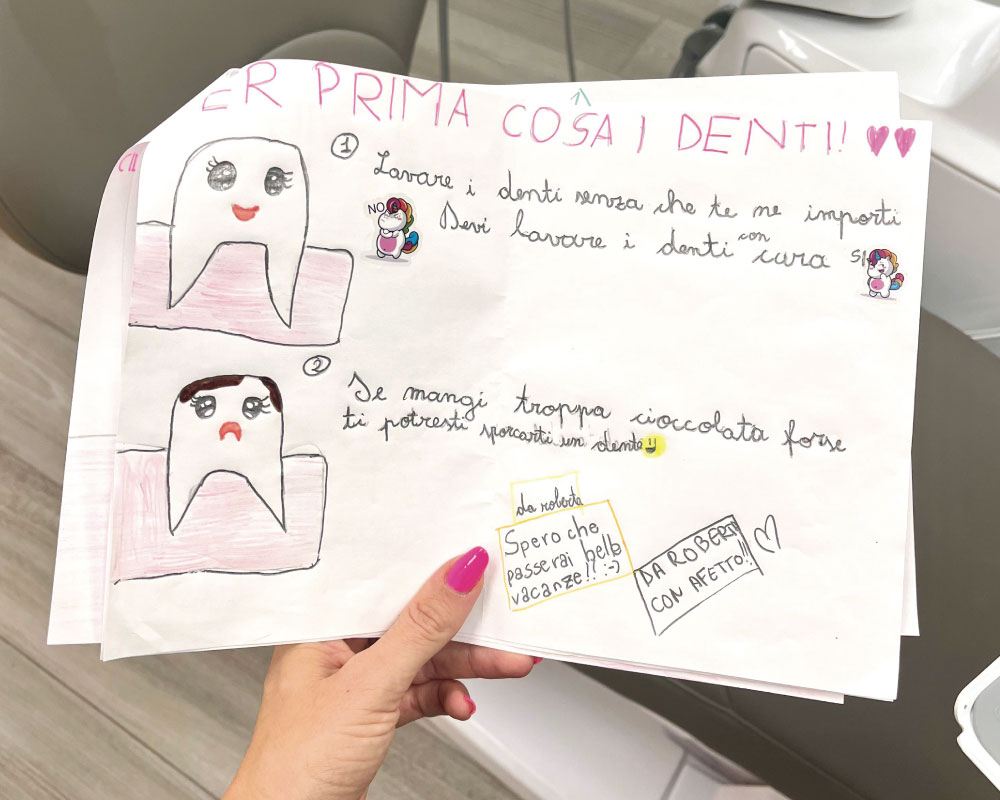 ER PRIMA COSA I DENTI!
CI
1
Lavare i denti senza che te ne importi
NO
Devi lavare i denti con cura
SI
2
Se mangi troppa cioccolata forse
ti potresti sporcarti un dente
da roberta
Spero che
passerai belle
vacanze!! :-)
DA ROBERTA
CON AFETTO!!